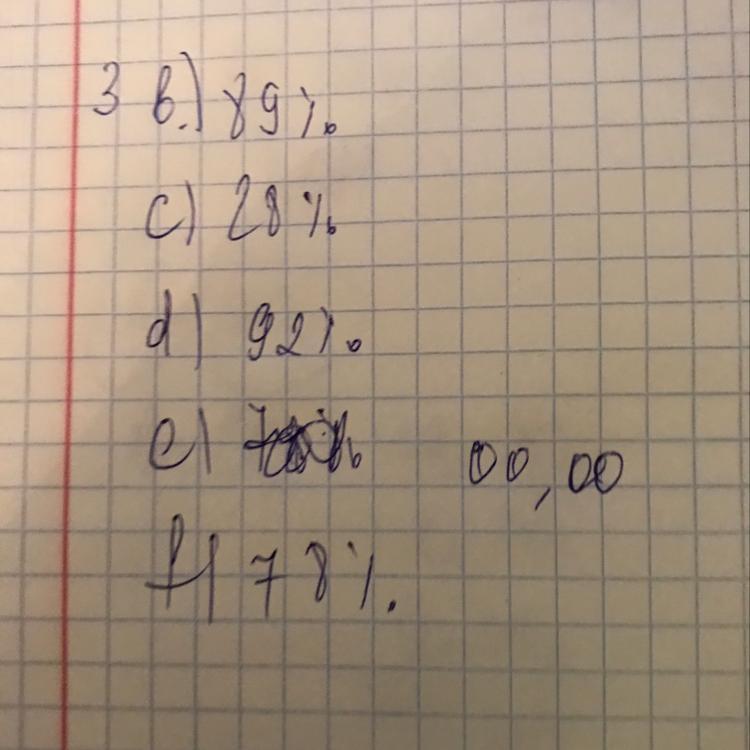 3 b.) 89%
c) 28%
d) 92%
e) 00,00
f) 78%